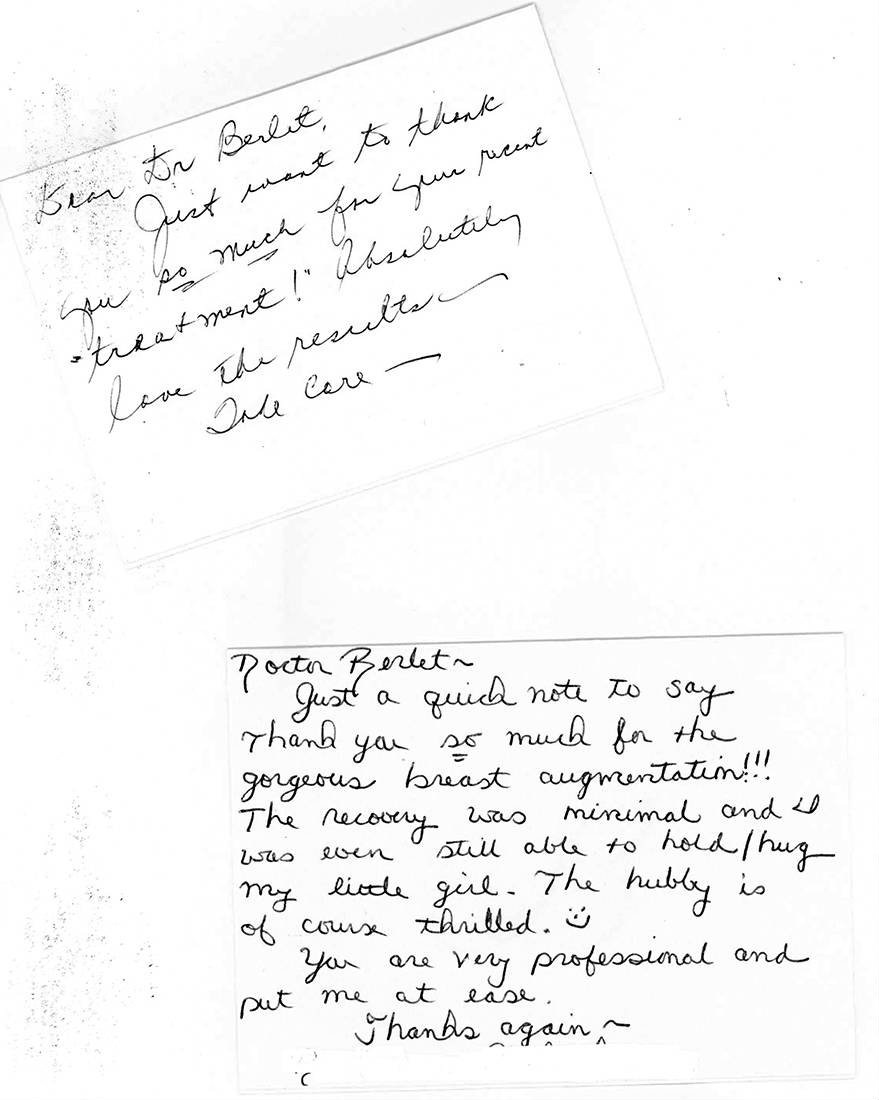 Dear Dr Berlet,
Just want to thank
you so much for your recent
"treatment!" Absolutely
love the results—
Take Care—
Doctor Berlet~
Just a quick note to say
Thank you so much for the
gorgeous breast augmentation!!!
The recovery was minimal and I
was even still able to hold/hug
my little girl. The hubby is
of course thrilled. :)
You are very professional and
put me at ease.
Thanks again~